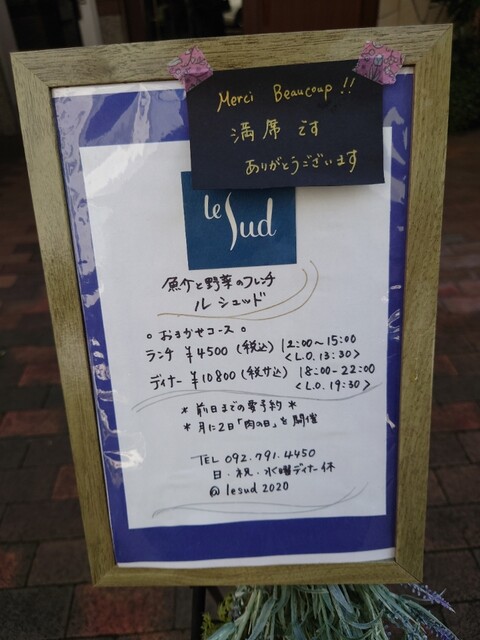 Merci Beaucoup!!
満席です
ありがとうございます
le Sud
魚介と野菜のフレンチ
ル シュッド
。おまかせコース。
ランチ ¥4500 (税込) 12:00～15:00
<L.O.13:30>
ディナー ¥10800 (税サ込) 18:00-22:00
<L.O.19:30>
* 前日までの要予約 *
* 月に2日「肉の日」を開催
TEL 092.791.4450
日・祝・水曜ディナー休
@lesud2020